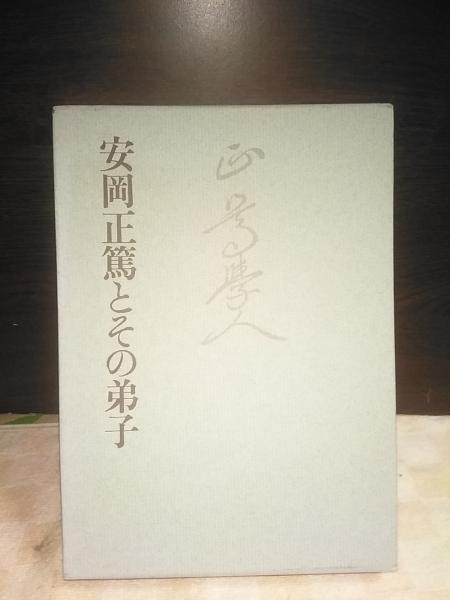 安岡正篤とその弟子
正篤學人